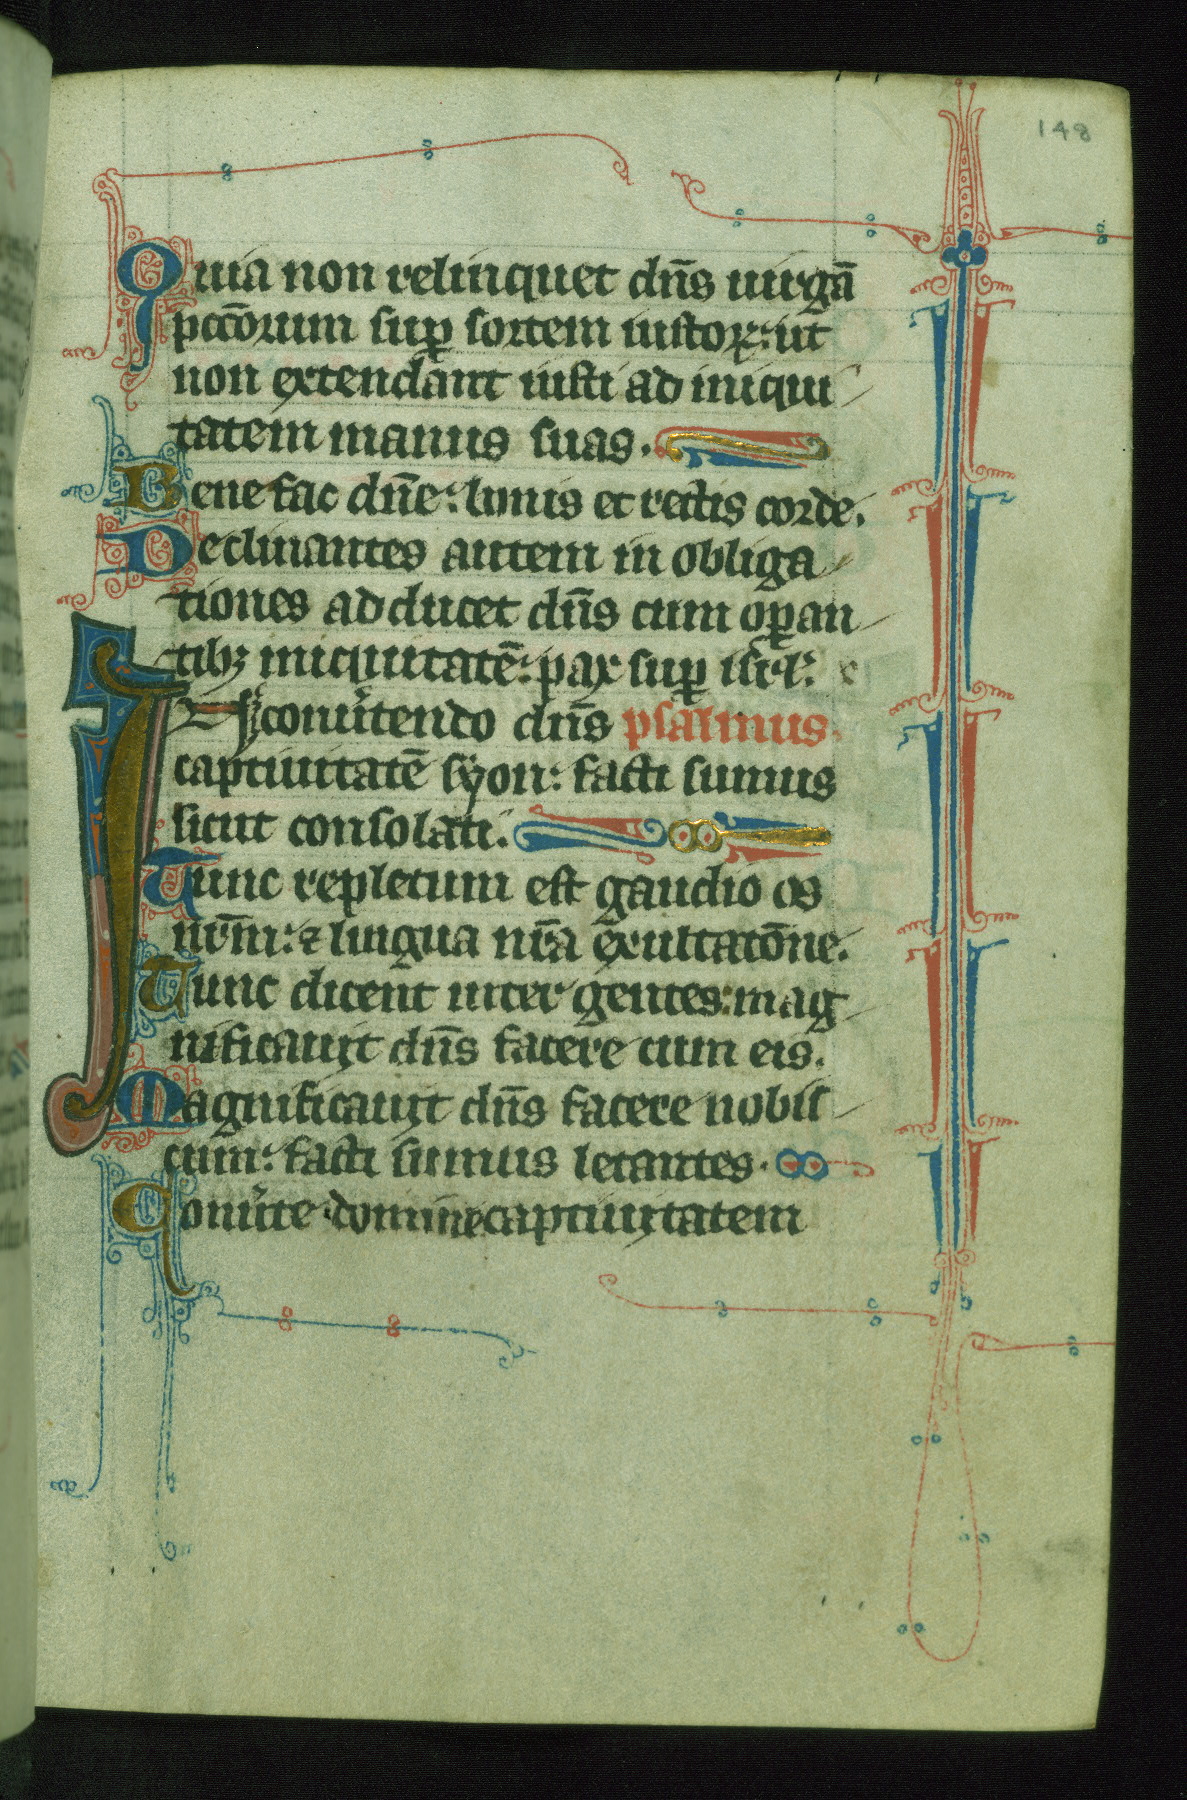 148
Quia non relinquet dn̄s uirgā
pccōrum sup̱ sortem iustoꝝ: ut
non extendant iusti ad iniqui
tatem manus suas.
Bene fac dn̄e: bonis et rectis corde.
Declinantes autem in obliga
tiones adducet dn̄s cum op̱an
tibꝫ iniquitatē: pax sup̱ isrl̄:
In conu̾tendo dn̄s psalmus.
captiuitatē syon: facti sumus
sicut consolati.
Tunc repletum est gaudio os
nr̄m: ⁊ lingua nr̄a exultatōne.
Tunc dicent inter gentes: mag
nificauit dn̄s facere cum eis.
Magnificauit dn̄s facere nobis
cum: facti sumus letantes.
Conu̾te domine captiuitatem